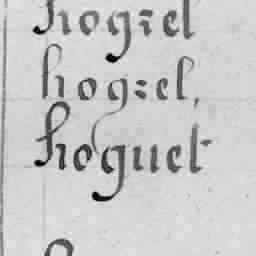 hogzel
hogzel,
hoguet